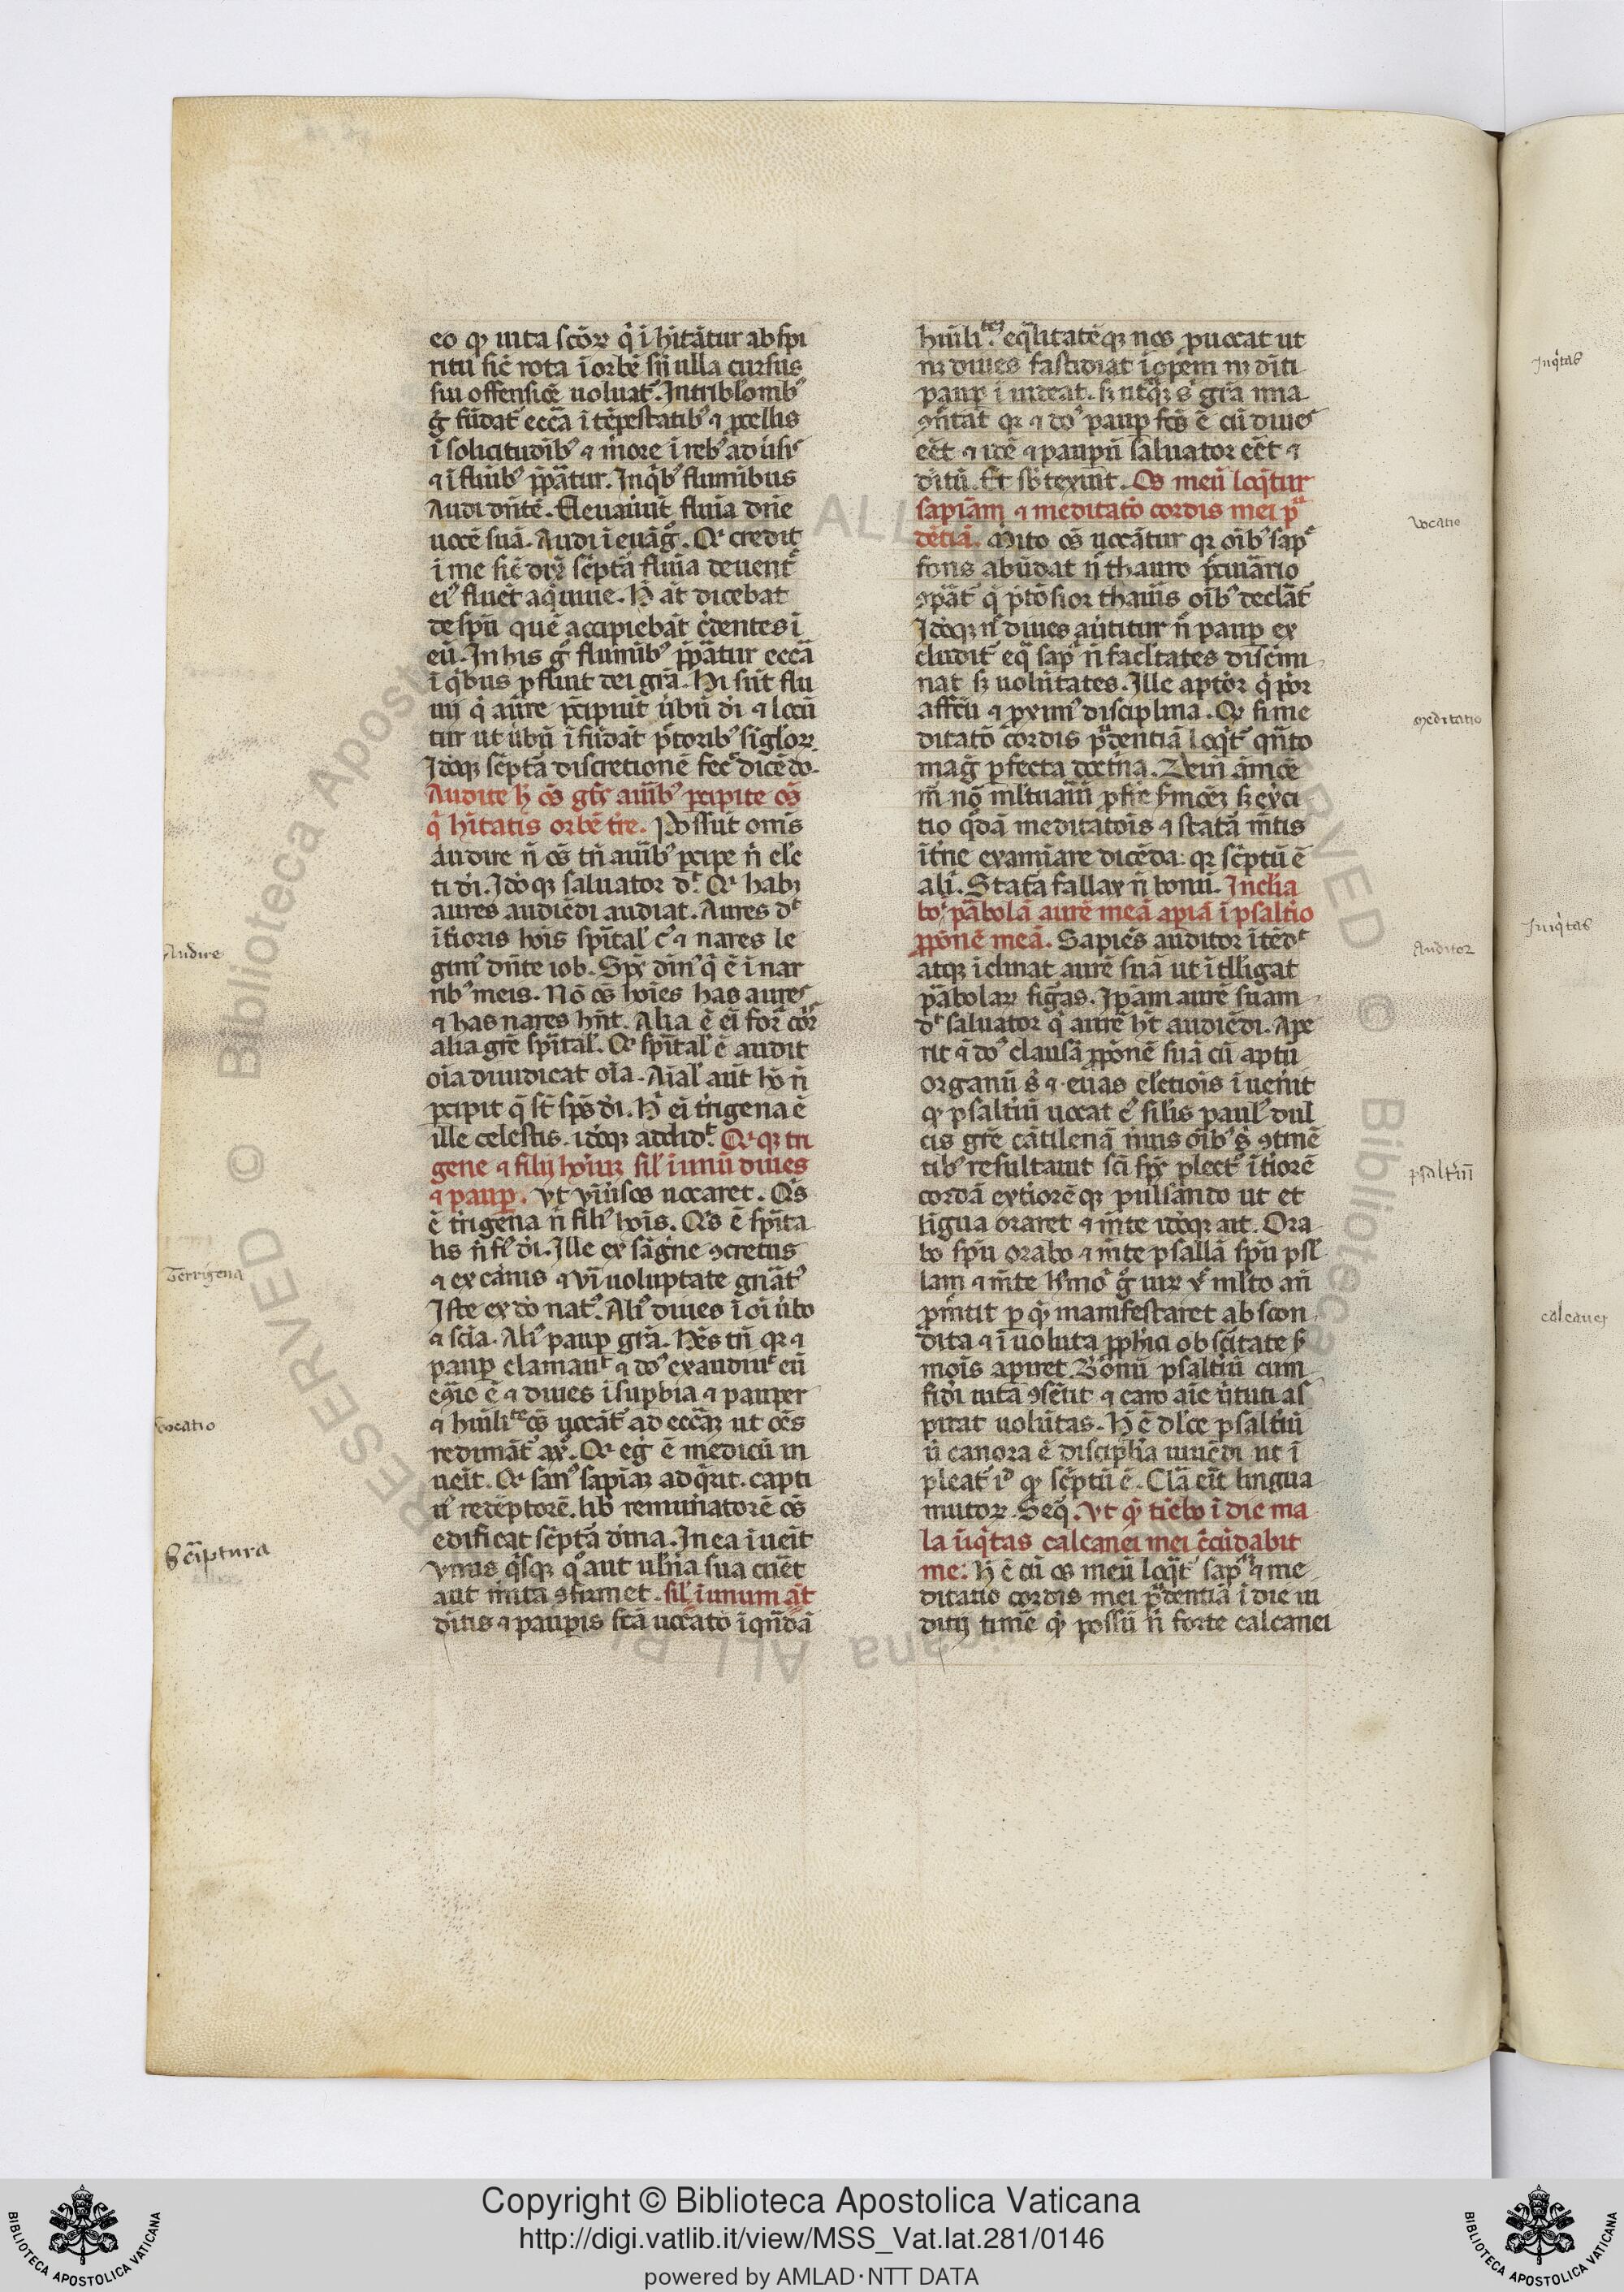 eo ꝙ uita sc̄oꝝ q̇ ī hītātur ab spi
ritu sic̄ rota ī orbē sn̄ ulla cursus
sui offensiōe uoluat᷑. In triblōnibꝰ
g̊ fūdat᷑ ecc̄a ī tēpestatibꝰ ⁊ ꝓcellis
ī solicitudīibꝰ ⁊ in ore ī rebꝰ aduīs᷑
⁊ ī fluīibꝰ p̄ꝑatur. In qi̇bꝰ fluminibus
Audi dn̄tē. Eleuauīt flumīa dn̄e
uocē suā. Audi ī euāg̊. Qi credit
ī me sic̄ dix̄ sc̄ptā flumīa de uent᷑
eiꝰ fluēt aq̄ uiue. H̄ āt dicebat
de sp̄u quē accipiebāt c̄dentes ī
eū. In his g̊ fluminibꝰ p̄ꝑatur ecc̄a
ī qi̇bus ꝓfluūt dei gr̄a. Hi sūt flu
uij q̇ aūre p̄cipiūt ūbū dī ⁊ locū
tur ut ūbū īfūdāt p̄toribꝰ siglōꝝ.
Idōqꝫ sc̄ptā discretionē fec᷑ dicēdo.
Audite h̄ ōs gt̄s auīibꝰ ꝑcipite ōs
q̇ hītatis orbē tr̄e. Possūt om̄s
audire n̄ ōs tn̄ auīibꝰ ꝑcipe n̄ ele
ti dī. Idōqꝫ saluator d᷑. Qi habꝫ
aures audiēdi audiat. Aures d᷑
īt̄ioris hoīs spīital᷑ ē ⁊ nares le
gimꝰ dn̄te iob. Sp̄s dīnꝰ q̇ ē ī nar
ribꝰ meis. Nō ōs hoīes has aures
⁊ has nares hn̄t. Alia ē eī for᷑ cor᷑
alia gr̄e spīital᷑. Qi spīital᷑ ē audit
oīa diiudicat oīa. Aīal᷑ aūt hō n̄
ꝑcipit q̄ st̄ sp̄s dī. H̄ eī t̄rigena ē
ille celestis. idōqꝫ addid᷑. Qi qꝫ t̄ri
gene ⁊ filij hoīuꝫ sil᷑ ī unū diues
⁊ pauꝑ. Vt uīiūsos uocaret. Qi̇s
ē t̄rigena n̄ filiꝰ hoīs. Qi̇s ē spīita
lis n̄ fil᷑ dī. Ille ex sāgīne ꝯcretus
⁊ ex carīnis ⁊ uī uoluptate gn̄atꝰ
Iste ex dō natꝰ. Aliꝰ diues ī oī ūbo
⁊ scīa. Aliꝰ pauꝑ gr̄a. Hēs tn̄ qꝛ ⁊
pauꝑ clamauit ⁊ dō exaudiuit eū
⁊ diues ī suꝑbia ⁊ pauper
⁊ humīlitate ōs uocāt᷑ ad ecc̄aꝫ ut oēs
redimāt᷑ a x̄. Qi eg̊ ē medicū in
ueīt. Qi sanꝰ sapīaꝫ adq̇rit. capti
uꝰ redēptorē. lib᷑ remūnatorē ōs
edificat sc̄ptā dīna. In ea īueīt
Vnus q̇sqꝫ q̊ aut ulnīa sua cūet
aut mīta ꝯfirmet. sil᷑ ī unum q̄t
dītis ⁊ pauꝑis fc̄ā uocato ī qn̄dā
humīlitatē eq̄litatēqꝫ nos ꝓuocat ut
nꝫ diues fastidiat īopem nꝫ dīti
pauꝑ īuideat. sꝫ utqꝫ s̄ gr̄a una
ꝯm̄tat qꝛ ⁊ dōꝰ pauꝑ fc̄s ē cū diues
eēt ⁊ idē ⁊ pauꝑū saluator eēt ⁊
dītū. Et sb̄texuit. Os meū loq̄tur
sapīam ⁊ meditatō cordis mei pru
dētiā. M̄ito ōs uocātur qꝛ oībꝰ sap᷑
fons abūdat n̄ thauro p̄cuiārio
ꝯꝑat᷑ q̇ p̄tōsior thauīs oībꝰ declāt᷑
Idōqꝫ nꝰ diues aūtitur n̄ pauꝑ ex
cludit᷑ eq̄ sap᷑ n̄ facl̄tates discīmi
nat sꝫ uolūtates. Ille aptōr q̇ pōr
affc̄u ⁊ ꝓximꝰ disciplīna. Qi si me
ditatō cordis prudentiā loq̇t᷑ qn̄to
mag̊ ꝑfecta doctīna. Deīn āmoē
m̄ nō ml̄tuaīu ꝓfīre s̄moēꝫ sꝫ exci
tio q̄dā meditatoīs ⁊ statā m̄tis
ī t̄ne examīare dicēda. qꝛ sc̄ptū ē
alī. Stata fallax n̄ bonū. Inclīa
bo ī pābolā aurē meā apīā ī psaltīo
ꝓpōnē meā. Sapīes auditor ītēd᷑
atqꝫ īclinat aurē suā ut ītelligat
pābolaꝝ figᷓas. Ipām aurē suam
d᷑ saluator q̇ aurē ht̄ audiēdi. Ape
rit ⁊ dōꝰ clausā ꝓpōnē suā cū aptū
organū s̄ ⁊ euas elc̄tiōis īuenīt
ꝙ psaltīu uocat ē similis paulꝰ dul
cis gr̄e cātilenā intus oībꝰ s̄ ꝯtinē
tibꝰ resultauit sc̄i sp̄s plect᷑ ītiorē
cordā extiorēqꝫ pulsando ut et
lingua oraret ⁊ mente idōqꝫ ait. Ora
bo sp̄u orabo ⁊ mēte psallā sp̄u psal
lam ⁊ m̄te
p ꝙ manifestaret abscon
dita ⁊ īuoluta ꝓph̄ici obscītate s̄
mōis apīret. Bonū psaltīu cum
fidī uitā ꝯsētit ⁊ caro aīe ūtuti as
pirat uolūtas. H̄ ē dl̄ce psaltīu
ū canora ē disciplīa uiuēdi ut ī
pleat᷑ iđ ꝙ sc̄ptū ē. Clā eīt lingua
mutoꝝ. Seq̄. Vt q̇ tiēbo ī die ma
la inq̇tas calcanei mei c̄cūdabit
me. H̄ ē cū os meū loq̄t᷑ sap᷑ ⁊ me
ditatio cordis mei prudentiā ī die iu
ditij tim̄e q̇ possū n̄ forte calcanei
Audire
Terrigena
vocatio
Scr̄iptura
vocatio
meditatio
Auditor
psaltīu
Inq̇tas
Iniq̇tas
calcaneꝰ
Copyright © Biblioteca Apostolica Vaticana
http://digi.vatlib.it/view/MSS_Vat.lat.281/0146
powered by AMLAD·NTT DATA
BIBLIOTECA APOSTOLICA VATICANA
BIBLIOTECA APOSTOLICA VATICANA